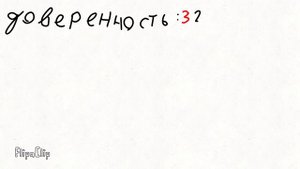 доверенность :3 2
FlipaClip